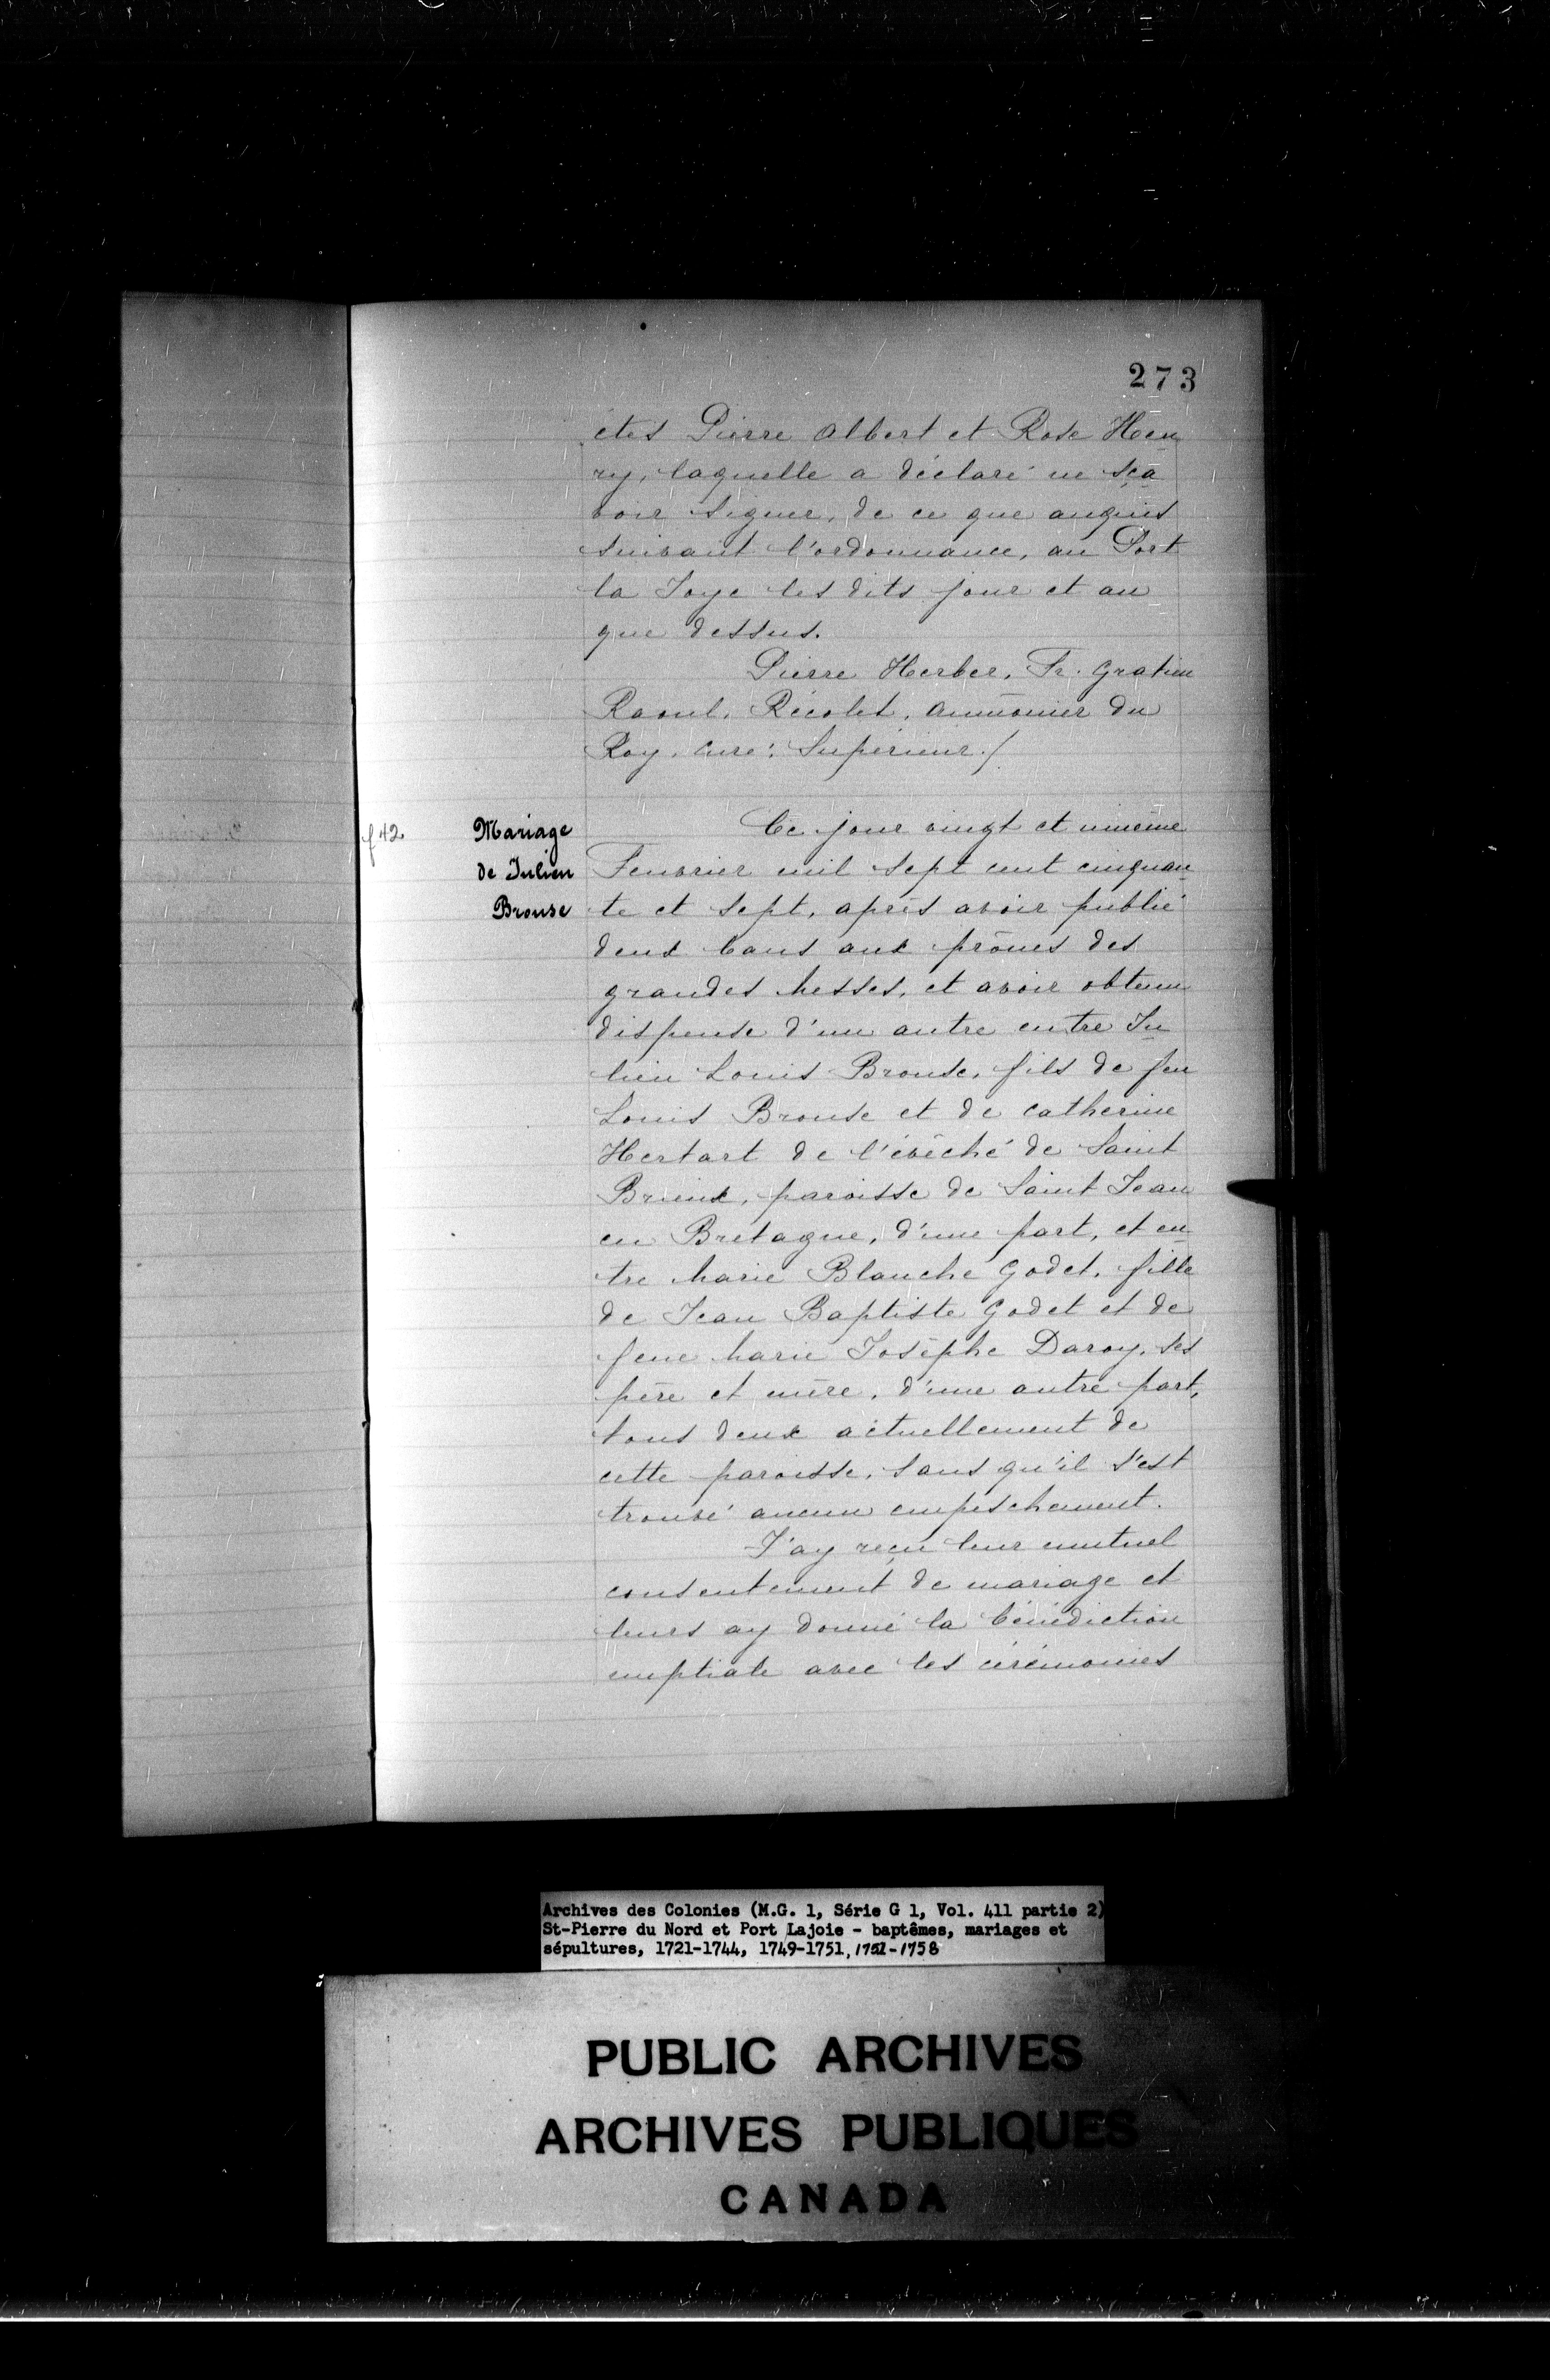 273
étés Pierre Albert et Rose Hen
ry, laquelle a déclaré ne sça
voir signer, de ce que anquis
suivant l'ordonnance, au Port
la Joye les dits jour et an
que dessus.
Pierre Herber, Fr. Gratien
Raoul, Récolet, aumônier du
Roy, curé: Supérieur./
f 42
Mariage
de Julien
Brouse
Ce jour vingt et unieme
Feuvrier mil sept cent cinquan
te et sept, après avoir publié
deux bans aux prônes des
grandes Messes, et avoir obtenu
dispense d'un autre entre Ju
lien Louis Brouse, fils de feu
Louis Brouse et de Catherine
Hertart de l'évêché de Saint
Brieux, paroisse de Saint Jean
en Bretagne, d'une part, et en
tre Marie Blanche Godet, fille
de Jean Baptiste Godet et de
feue Marie Josèphe Daroy, ses
père et mère, d'une autre part,
tous deux actuellement de
cette paroisse, sans qu'il s'est
trouvé aucun empeschement.
J'ay reçu leur mutuel
consentement de mariage et
leurs ay donné la bénédiction
nuptiale avec les cérémonies
Archives des Colonies (M.G. 1, Série G 1, Vol. 411 partie 2)
St-Pierre du Nord et Port Lajoie - baptêmes, mariages et
sépultures, 1721-1744, 1749-1751, 1752-1758
PUBLIC ARCHIVES
ARCHIVES PUBLIQUES
CANADA